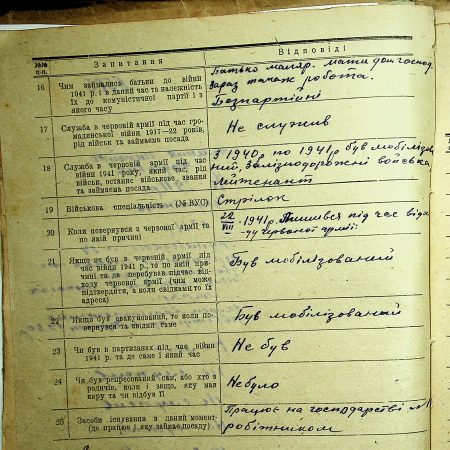 №№ п.п.
Запитання
Відповіді
16
Чим займались батьки до війни
1941 р. і в даний час та належність
їх до комуністичної партії і з
якого часу
Батько маляр. мати дом. господ.
Зараз також робота.
Безпартійні
17
Служба в червоній армії під час гро-
мадянської війни 1917—22 років,
рід військ та займаєма посада
Не служив
18
Служба в червоній армії під час
війни 1941 року, який час, рід
військ, останнє військово звання
та займаєма посада
З 1940р. по 1941р. був мобілізов
ний, Залізнодорожні войська
Лейтенант
19
Військова спеціальність (№ ВУС)
Стрілок
20
Коли повернувся з червоної армії та
по якій причині
22/VIII -1941р. Лишився під час відх-
ду червоної армії.
21
Якщо не був в червоній армії під
час війни 1941 р., то по якій при-
чині та де перебував підчас від-
ходу червоної армії (чим може
підтвердити, а коли свідками то їх
адреса)
Був мобілізований
22
Якщо був евакуйований, то коли по-
вернувся та звідки саме
Був мобілізований
23
Чи був в партизанах під час війни
1941 р. та де саме і який час
Не був
24
Чи був репресований сам, або хто з
родичів, коли і защо, яку мав
кару та чи відбув її
Небуло
25
Засоби існування з даний момент
(де працює і яку займає посаду)
Працює на господарстві №1
робітником